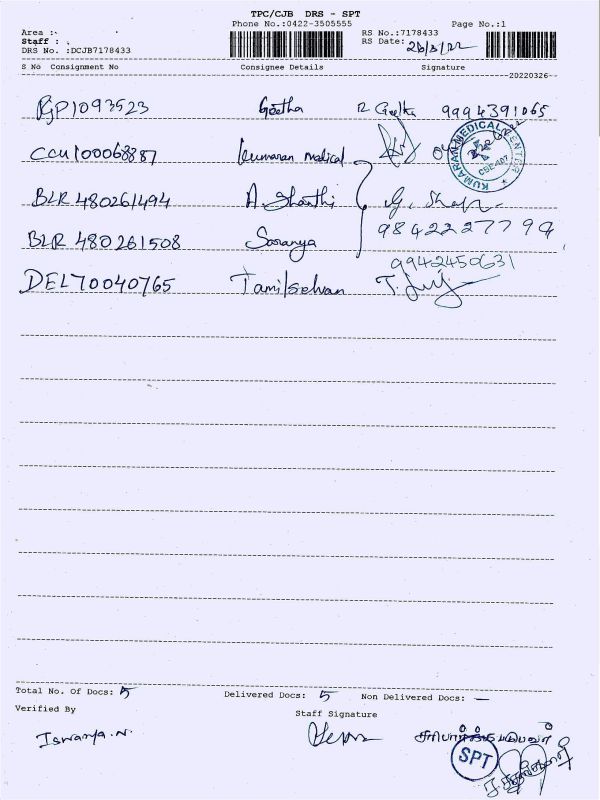 TPC/CJB DRS - SPT
Phone No.:0422-3505555 Page No.:1
Area :-
Staff :
RS No.:7178433
DRS No. :DCJB7178433 RS Date: 26/3/22
S No Consignment No Consignee Details Signature
20220326
PGP1093523 Geetha R Geetha 9994391065
CCU100068887 Kumaran Medical
KUMARAN MEDICAL CENTER
CBE-401
BLR 480261494 A. Shanthi
BLR 480261508 Saranya 9842227799
9942450631
DEL70040765 Tamilselvan
Total No. Of Docs: 5 Delivered Docs: 5 Non Delivered Docs: —
Verified By Staff Signature
Iswarya.N.
SPT